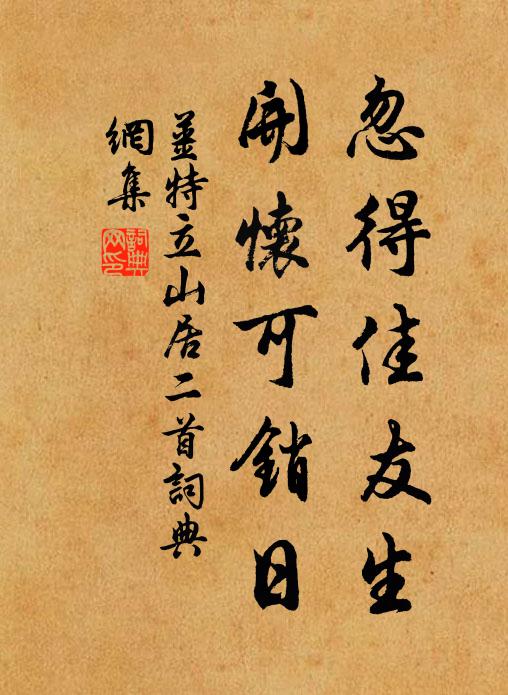 忽得佳友生
開懷可銷日
姜特立山居二首詞典
網集
詞典
网印